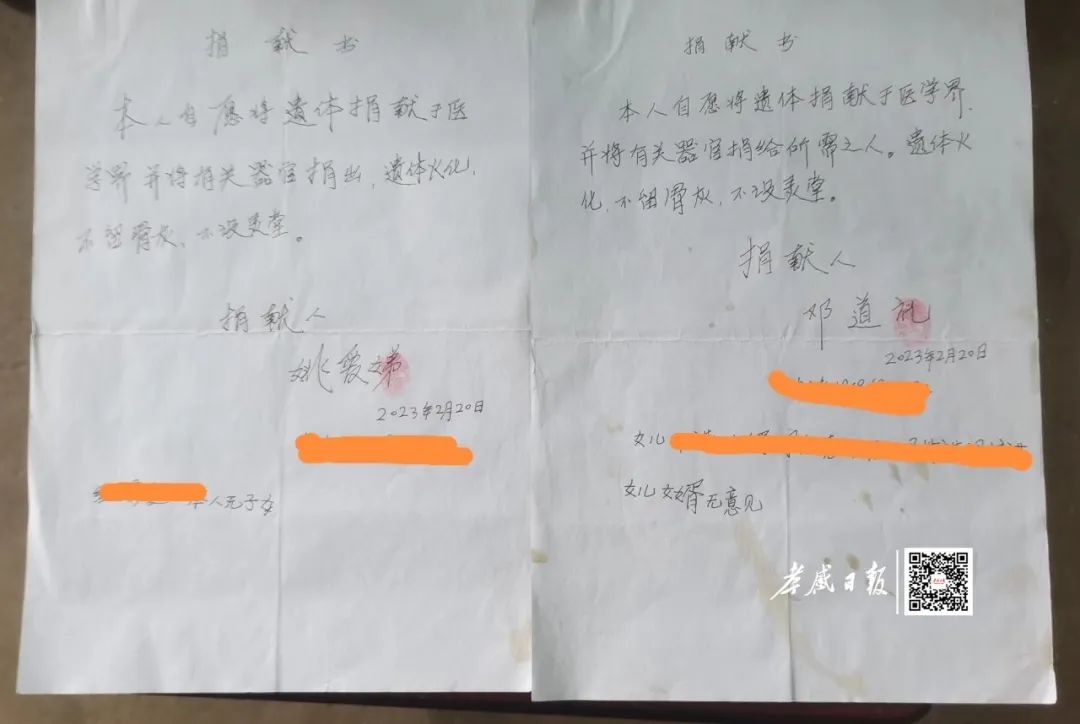 捐献书
本人自愿将遗体捐献于医
学界并将相关器官捐出,遗体火化,
不留骨灰、不设灵堂。
捐献人
姚爱娣
2023年2月20日
本人无子女
捐献书
本人自愿将遗体捐献于医学界,
并将有关器官捐给所需之人。遗体火
化,不留骨灰,不设灵堂。
捐献人
邓道礼
2023年2月20日
女儿
女儿女婿无意见
孝感日报